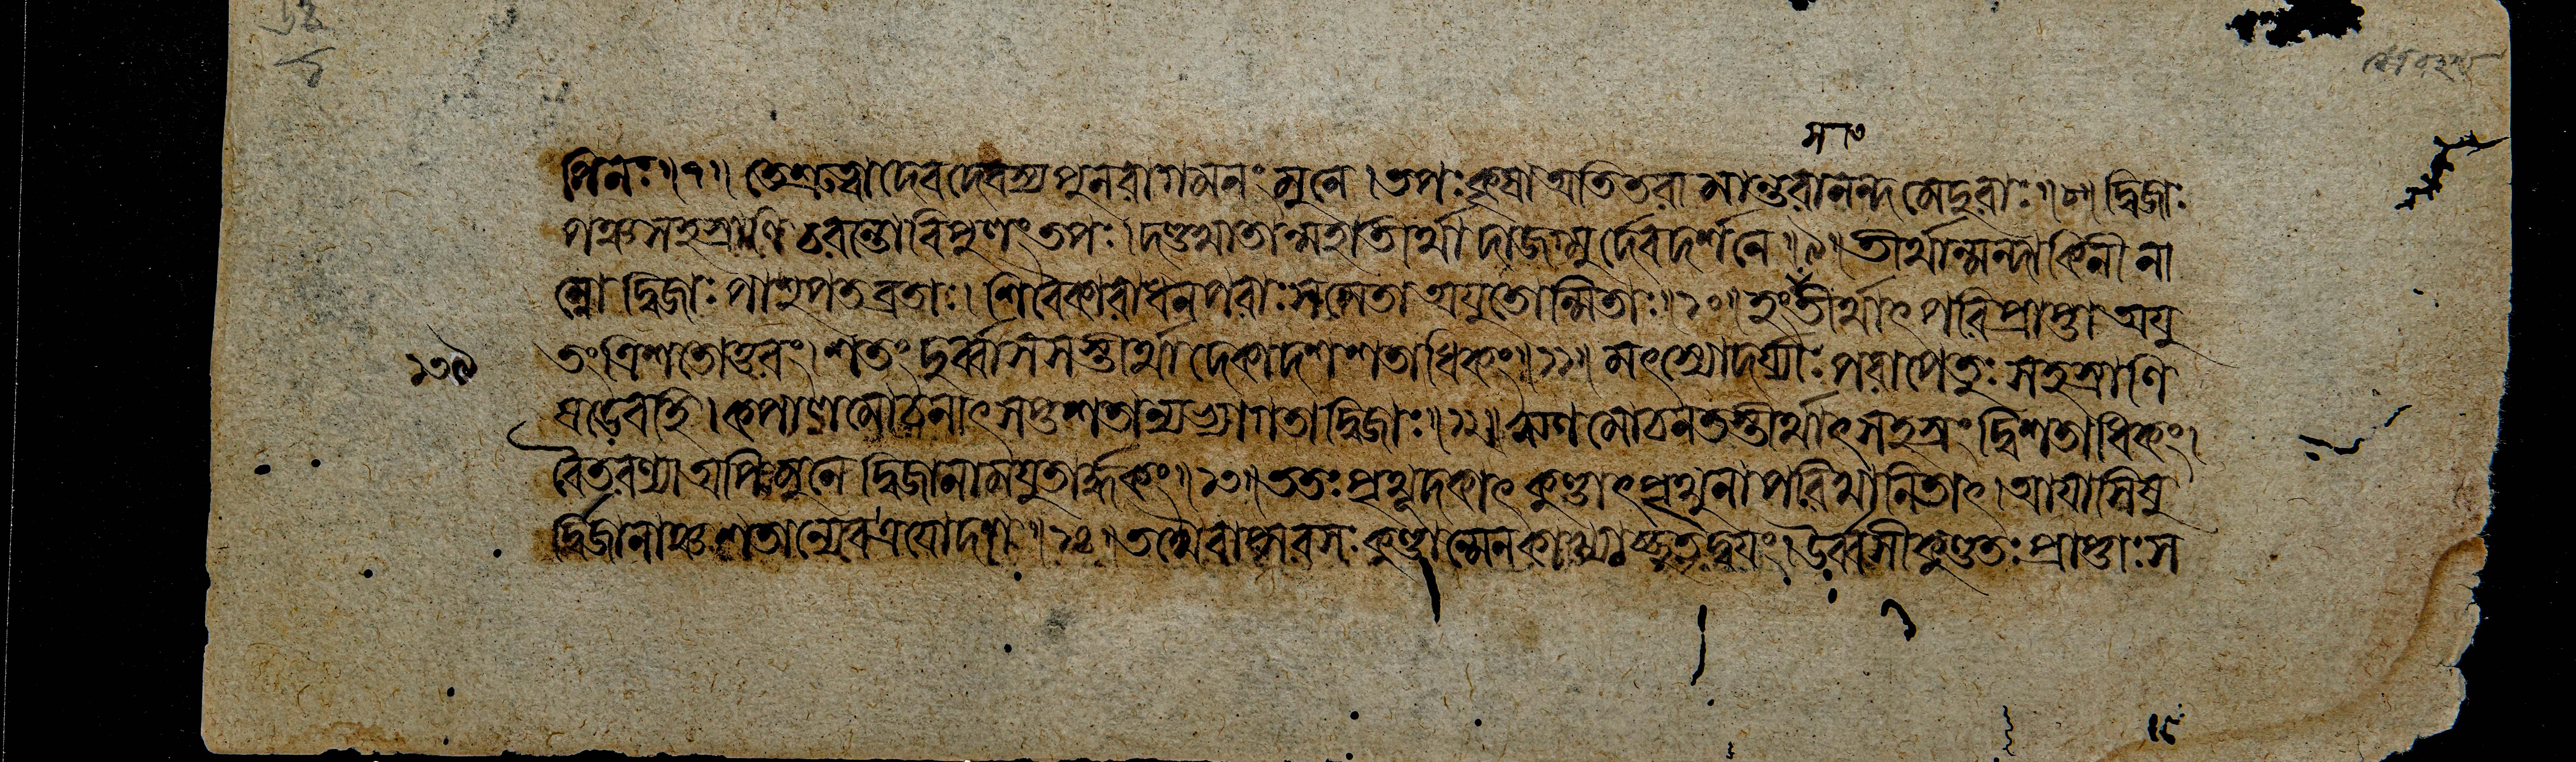 সাং
পিনঃ॥৭॥ তেশ্রুত্বাদেবদেবস্য পুনরাগমনং মুনে।তপঃকৃষা অতিতরা মাশুরানন্দমেদুরাঃ॥৮॥ দ্বিজাঃ
পঞ্চসহস্রাণি চরন্তোবিপুলংতপঃ।দণ্ডখাতান্মহাতীর্থা দাজগ্মুর্দেবদর্শনে॥৯॥ তীর্থান্মন্দাকিনী না
ম্নো দ্বিজাঃ পাশুপতব্রতাঃ। শিবৈকারাধনপরাঃসমেতা অযুতোন্মিতাঃ॥১০॥ হংসতীর্থাৎপরিপ্রাপ্তা অযু
১৩৯ তংত্রিশতোত্তরং। শতং দুর্ব্বাসসস্তীর্থা দেকাদশশতাধিকং॥১১॥ মৎস্যোদর্য্যাঃ পরাপেতুঃ সহস্রাণি
ষডেবহি। কপালমোচনাৎ সপ্তশতান্যভ্যাগতাদ্বিজাঃ॥১২॥ ঋণমোচনতস্তীর্থাৎসহস্রং দ্বিশতাধিকং।
বৈতরণ্যা অপিমুনে দ্বিজানামযুতার্দ্ধকং॥১৩॥ ততঃপৃথূদকাৎ কুণ্ডাৎপৃথুনা পরিখানিতাৎ। আযাসিষু
র্দ্বিজানাঞ্চ শতান্যেবত্রযোদশ॥১৪॥ তথৈবাপ্সরসঃ কুণ্ডান্মেনকাখ্যাচ্ছতদ্বযং। উর্ব্বসীকুণ্ডতঃ প্রাপ্তাঃ স